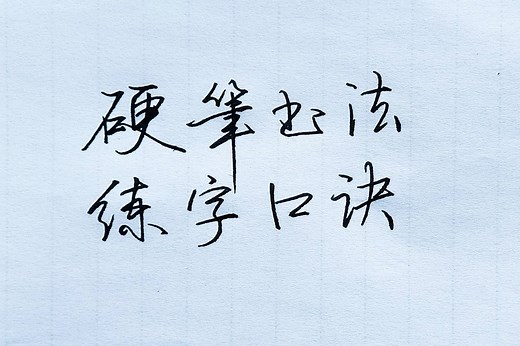 硬筆书法
练字口诀